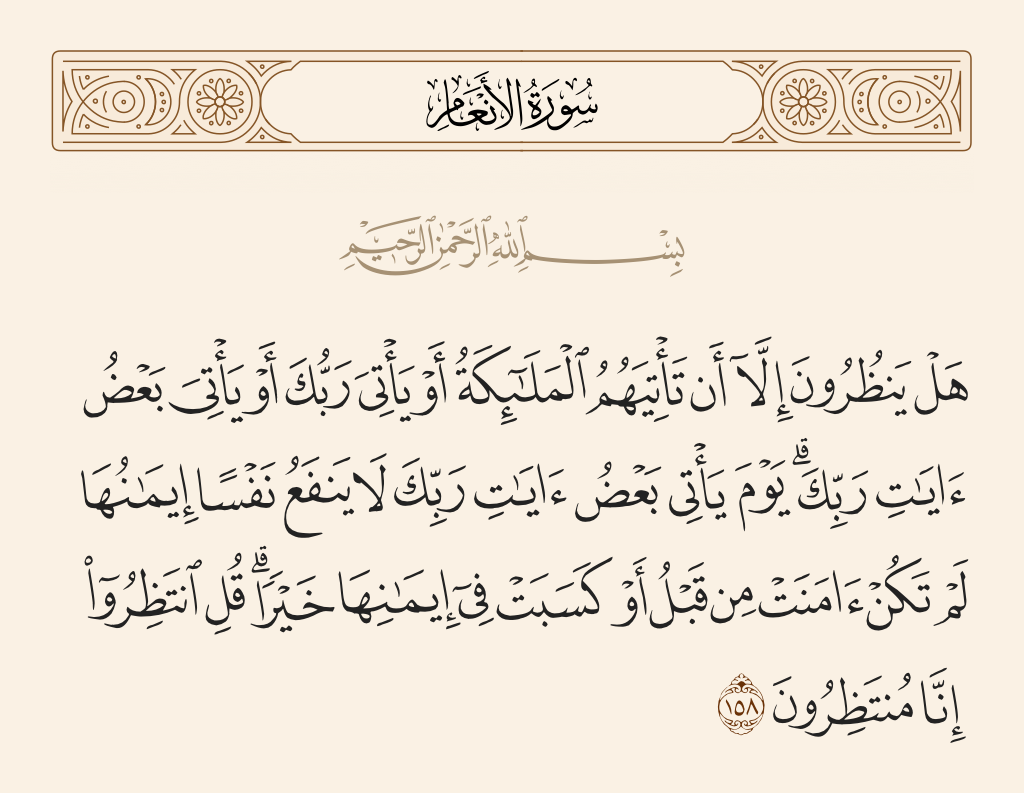 سُورَةُ الأَنْعَامِ
بِسْمِ ٱللَّهِ ٱلرَّحْمَٰنِ ٱلرَّحِيمِ
هَلْ يَنظُرُونَ إِلَّآ أَن تَأْتِيَهُمُ ٱلْمَلَـٰٓئِكَةُ أَوْ يَأْتِىَ رَبُّكَ أَوْ يَأْتِىَ بَعْضُ
ءَايَـٰتِ رَبِّكَ ۗ يَوْمَ يَأْتِى بَعْضُ ءَايَـٰتِ رَبِّكَ لَا يَنفَعُ نَفْسًا إِيمَـٰنُهَا
لَمْ تَكُنْ ءَامَنَتْ مِن قَبْلُ أَوْ كَسَبَتْ فِىٓ إِيمَـٰنِهَا خَيْرًا ۗ قُلِ ٱنتَظِرُوٓا۟
إِنَّا مُنتَظِرُونَ ١٥٨